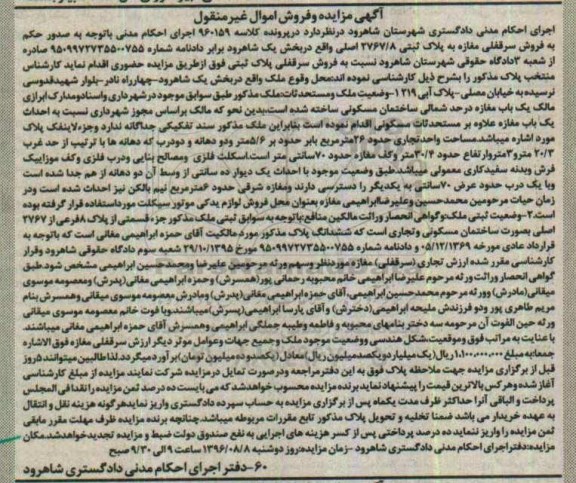 آگهی مزایده وفروش اموال غیرمنقول
اجرای احکام مدنی دادگستری شهرستان شاهرود درنظردارد درپرونده کلاسه ۹۶۰۱۵۹ اجرای احکام مدنی باتوجه به صدور حکم
به فروش سرقفلی مغازه به پلاک ثبتی ۲۷۶۷/۸ اصلی واقع دربخش یک شاهرود برابر دادنامه شماره ۹۵۰۹۹۷۲۷۳۵۵۰۰۷۵۵ صادره
از شعبه ۳دادگاه حقوقی شهرستان شاهرود نسبت به فروش سرقفلی پلاک ثبتی فوق ازطریق مزایده حضوری اقدام نماید کارشناس
منتخب پلاک مذکور را بشرح ذیل کارشناسی نموده اند:محل وقوع ملک واقع دربخش یک شاهرود-چهارراه نادر-بلوار شهیدقدوسی
نرسیده به خیابان مصلی-پلاک آبی ۱۲۱۹-وضعیت ملک ومستحدثات:ملک مذکور طبق سوابق موجود در شهرداری واسنادومدارک ابرازی
مالک یک باب مغازه درحد شمالی ساختمان مسکونی ساخته شده است،بدین نحو که مالک براساس مجوز شهرداری نسبت به احداث
یک باب مغازه علاوه بر مستحدثات مسکونی اقدام نموده است بنابراین ملک مذکور سند تفکیکی جداگانه ندارد وجزء لاینفک پلاک
مورد اشاره میباشد.مساحت واحدتجاری حدود ۲۶مترمربع بابر حدود بر ۵/۶متر ودو دهانه و دودرب که دهانه ها با ترتیب از حد غرب
۲۰/۳ مترو۳متروارتفاع حدود ۳۰/۴متر وکف مغازه حدود ۷۰سانتی متر است.اسکلت فلزی ومصالح بنایی ودرب فلزی وکف موزاییک
فرش وبدنه سفیدکاری معمولی میباشد.طبق وضعیت موجود با احداث یک دیوار ده سانتی از وسط آن دو دهانه از هم جدا شده است
وبا یک درب حدود عرض ۷۰سانتی به یکدیگر را دسترسی دارند ومغازه شرقی حدود ۶مترمربع نیم بالکن نیز احداث شده است ودر
زمان حیات مرحومین محمدحسین وعلیرضاابراهیمی مغازه بعنوان محل فروش لوازم یدکی موتور سیکلت مورداستفاده قرار گرفته بوده
است.۲-وضعیت ثبتی ملک وگواهی انحصار وراثت مالکین منافع:باتوجه به سوابق ثبتی ملک مذکور جزء قسمتی از پلاک ۸فرعی از ۲۷۶۷
اصلی بصورت ساختمان مسکونی و تجاری است که ششدانگ پلاک مذکور مورد مالکیت آقای حمزه ابراهیمی مغانی است که باتوجه به
قرارداد عادی مورخه ۰۵/۱۲/۱۳۶۹ و دادنامه شماره ۹۵۰۹۹۷۲۷۳۵۵۰۰۷۵۵ مورخ ۲۹/۱۰/۱۳۹۵ شعبه سوم دادگاه حقوقی شاهرود وقرار
کارشناسی مقرر شده ارزش تجاری (سرقفلی) مغازه موردنظر وسهم ورثه مرحومین علیرضا ومحمدحسین ابراهیمی مشخص شود.طبق
گواهی انحصار وراثت ورثه مرحوم علیرضا ابراهیمی خانم محبوبه رحمانی پور(همسرش) وحمزه ابراهیمی مغانی(پدرش) ومعصومه موسوی
میقانی(مادرش) وورثه مرحوم محمدحسین ابراهیمی،آقای حمزه ابراهیمی مغانی(پدرش) ومادرش معصومه موسوی میقانی وهمسرش بنام
مریم طاهری پور ودو فرزندش ملیحه ابراهیمی(دخترش) و آقای پارسا ابراهیمی(پسرش)میباشند.وبا فوت خانم معصومه موسوی میقانی
ورثه حین الفوت آن مرحومه سه دختر بنامهای محبوبه و فاطمه وطیبه جملگی ابراهیمی وهمسرش آقای حمزه ابراهیمی مغانی میباشند.
با عنایت به مراتب فوق وموقعیت،شکل هندسی ووضعیت موجود ملک وجمیع جهات وعوامل موثر دیگر ارزش سرقفلی مغازه فوق الاشاره
جمعا به مبلغ ۱،۱۰۰،۰۰۰،۰۰۰ ریال(یک میلیارد ویکصدمیلیون ریال)معادل(یکصدوده میلیون تومان)برآورد میگردد.لذا طالبین میتوانند ۵روز
قبل از برگزاری مزایده جهت ملاحظه پلاک فوق به این دفترمراجعه ودرصورت تمایل درمزایده شرکت نمایند مزایده از مبلغ کارشناسی
آغاز شده وهرکس بالاترین قیمت را پیشنهاد نماید برنده مزایده محسوب خواهدشد که می بایست ده درصد ثمن مزایده را نقدا فی المجلس
پرداخت و الباقی آنرا حداکثر ظرف مدت یکماه پس از برگزاری مزایده به حساب سپرده دادگستری واریز نماید هرگونه هزینه نقل و انتقال
به عهده خریدار می باشد ضمنا تخلیه و تحویل پلاک مذکور تابع مقررات مربوطه میباشد.چنانچه برنده مزایده ظرف مهلت مقرر مابقی
ثمن مزایده را واریز ننماید ده درصد پرداختی پس از کسر هزینه های اجرایی به نفع صندوق دولت ضبط و مزایده تجدید خواهدشد.مکان
مزایده:دفتراجرای احکام مدنی دادگستری شاهرود-زمان مزایده:روز دوشنبه ۱۳۹۶/۰۸/۸ ساعت ۹ الی ۹/۳۰ صبح
۶۰-دفتر اجرای احکام مدنی دادگستری شاهرود